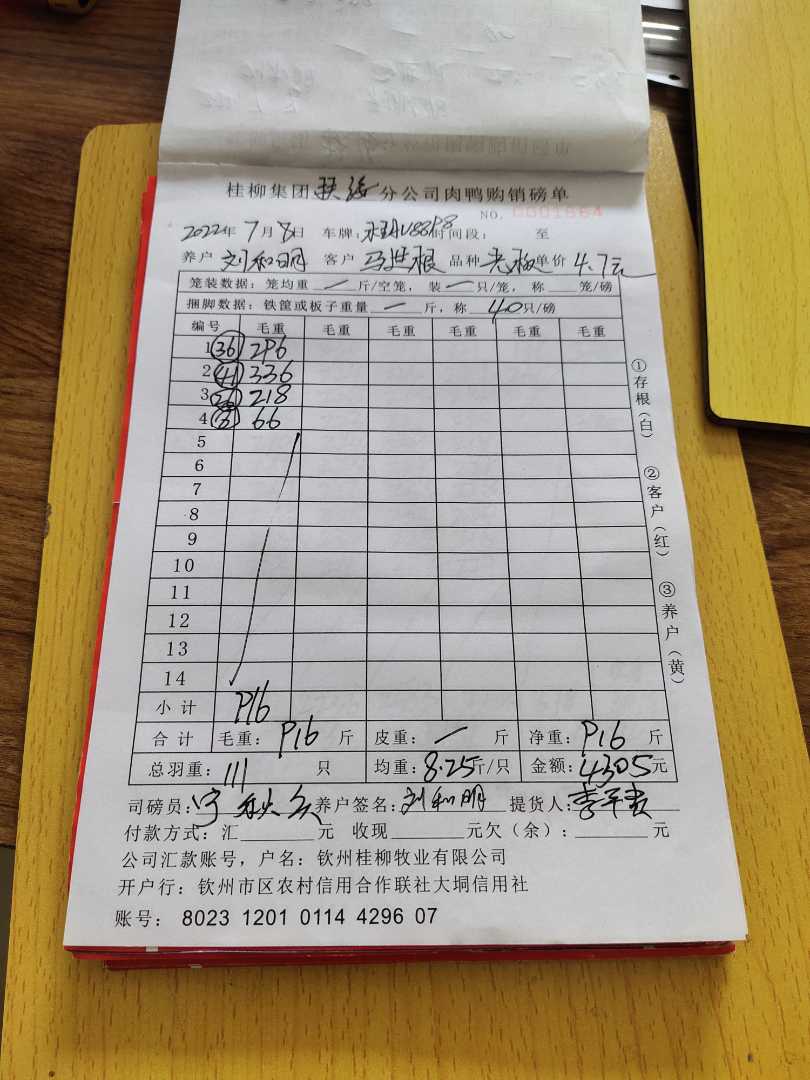 桂柳集团扶绥分公司肉鸭购销磅单
NO. 0001664
2022年7月8日 车牌: 时间段: 至
养户 刘和明 客户 马进根 品种 单价 4.7元
笼装数据: 笼均重 — 斤/空笼, 装 — 只/笼, 称 笼/磅
捆脚数据: 铁筐或板子重量 — 斤, 称 40只/磅
编号 毛重 毛重 毛重 毛重 毛重 毛重
1 36 296
2 41 336
3 26 218
4 8 66
5
6
7
8
9
10
11
12
13
14
小计 916
合计 毛重: 916 斤 皮重: — 斤 净重: 916 斤
总羽重: 111 只 均重: 8.25斤/只 金额: 4305元
司磅员: 养户签名: 刘和明 提货人:
付款方式: 汇 元 收现 元欠(余): 元
公司汇款账号, 户名: 钦州桂柳牧业有限公司
开户行: 钦州市区农村信用合作联社大垌信用社
账号: 8023 1201 0114 4296 07
①存根(白)
②客户(红)
③养户(黄)